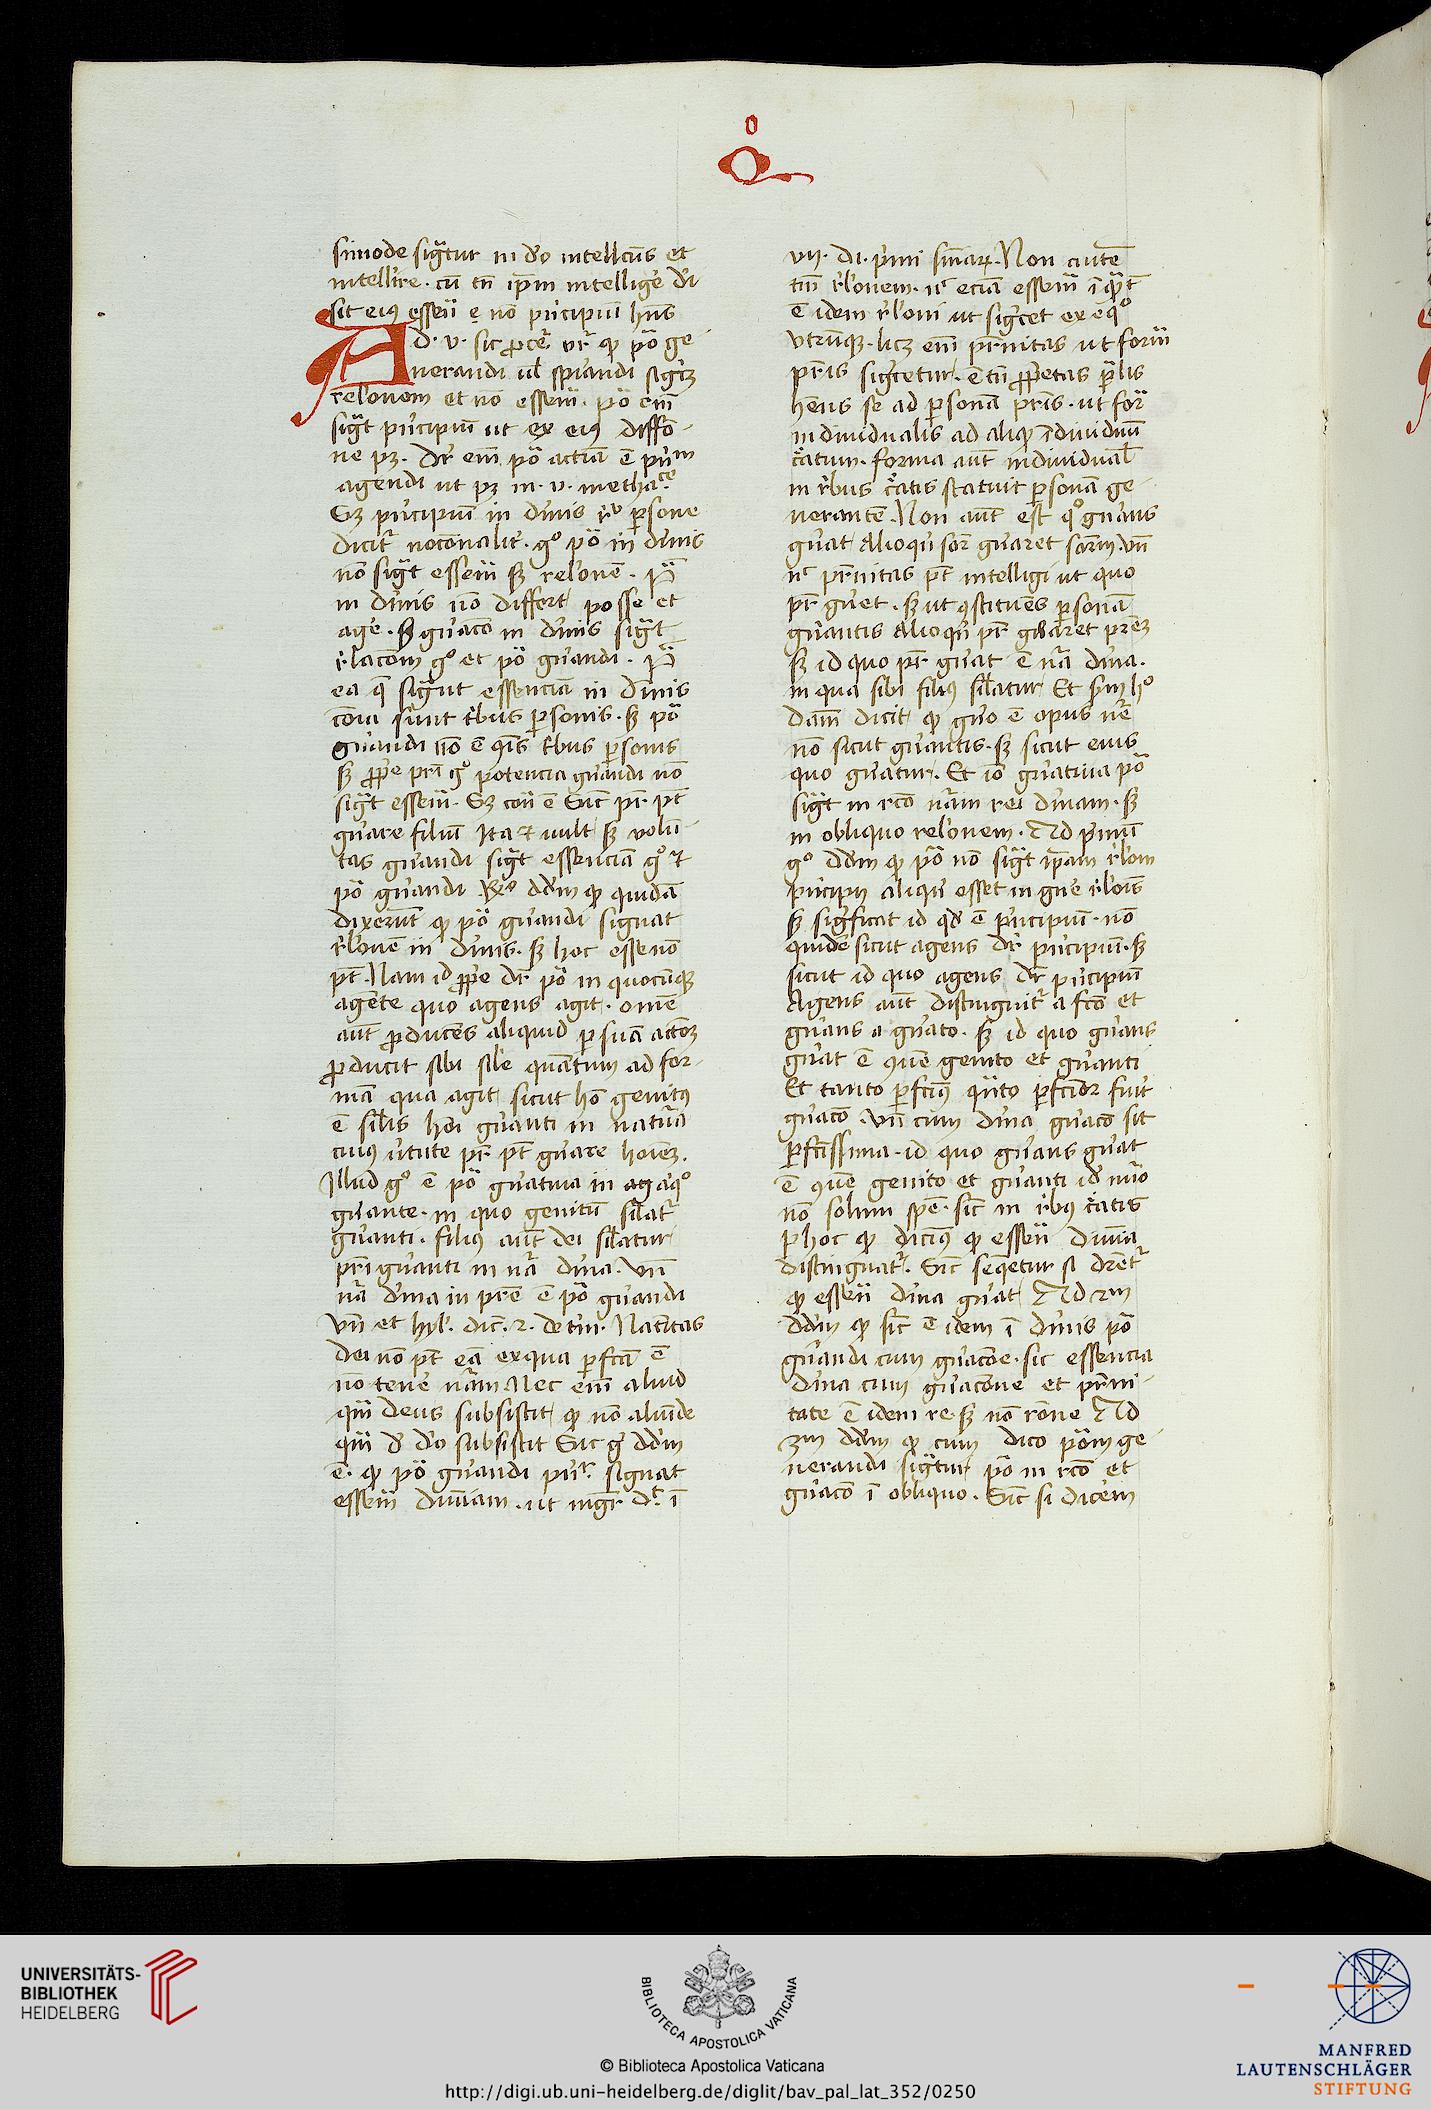 o
Q
simode sigtur in do intellcus et
intellire. cu tn ipm intellige di
sit eius essen e no pncipiu hns
Ad. v. sic procer vr qp po ge
nerandi ul spirandi sigt
relonem et no essen. po em
sigt pncipiu ut ex eius diffo-
ne pz. dr em po actia e pnm
agendi ut pz in. v. metha
Sz pncipiu in dinis persone
dicit noconalit. go po in dinis
no sigt essen sz relone.
in dinis no differt posse et
age. sz gnaco in dinis sigt
rlacom go et po gnandi.
ea q signt essencia in dinis
coia sunt tbus psonis. sz po
gnandi no e qis tbus psonis
sz ppe pri go potencia gnandi no
sigt essen. Sz con e Sic pr pt
gnare filiu Ita et uult sz volu
tas gnandi sigt essencia go et
po gnandi ddm qp quida
dixerut qp po gnandi signat
rlone in dinis. sz hoc esse no
pt. Nam id ppe dr po in quocunque
agete quo agens agit. ome
aut pduces aliquid p sua actoz
pducit sibi sile quatum ad for-
ma qua agit sicut ho genitus
e silis hoi gnanti in natura
cuius utute pr pt gnare hoiez.
Illud go e po gnatiua in aliquo
gnante. in quo genitu silatr
gnanti. filius aut dei silatur
pri gnanti in na dina. vn
na dina in pre e po gnandi
vn et hyl. dic. 2. de tin. Natitas
dei no pt ea ex qua pfcta e
no tene nram Nec em aliud
qm deus subsistit qp no aliude
qm d do subsistit Sic g ddm
e. qp po gnandi pnr. signat
essem diuiam. ut mgr dt i
vii. di. pimi sniar. Non aute
tm rlonem. nc ecia essem
e idem rloni ut sigcet ex equo
vtrunque. licz em prnitas ut form
pris sigcetur. e tn ppetas plis
hens se ad persona pris. ut for
individualis ad aliqp individuu
catum. forma aut individual
in rbus catis statuit persona ge
nerante. Non aut est quo gnans
gnat Alioqn sor gnaret sorm. vn
nc prnitas pt intelligi ut quo
pr gnet. sz ut qstitues persona
gnantis Alioqn pr gnaret prez
sz id quo pr gnat e na dina.
in qua sibi filius silatur Et sm ho
dam dicit qp gno e opus ne
no sicut gnantis. sz sicut eius
quo gnatur. Et io gnatiua po
sigt in rco nram rei dinam. sz
in obliquo relonem. Ad pmu
go ddm qp po no sigt ipam rlom
pncipii aliqn esset in gne rlois
sz sigficat id qd e pncipiu. no
quide sicut agens dr pncipiu. sz
sicut id quo agens dr pncipiu
Agens aut distinguitr a fco et
gnans a gnato. sz id quo gnans
gnat e que genito et gnanti
Et tanto pfctius qnto pfctior fuit
gnaco. vn cum dina gnaco sit
pfctissima. id quo gnans gnat
e que genito et gnanti id nuo
no solum spe. sic in rbus catis
p hoc qp dicius qp essen diuina
distinguatr. Sic sequetur si drentr
qp essen dina gnat Ad 2m
ddm qp sic e idem i dinis po
gnandi cum gnacone. sic essencia
dina cum gnacone et prni-
tate e idem re. sz no rone Ad
3m ddm qp cum dico pom ge
nerandi sigtur po in rco et
gnaco i obliquo. Sic si dicem
UNIVERSITÄTS-
BIBLIOTHEK
HEIDELBERG
BIBLIOTECA APOSTOLICA VATICANA
© Biblioteca Apostolica Vaticana
http://digi.ub.uni-heidelberg.de/diglit/bav_pal_lat_352/0250
MANFRED
LAUTENSCHLÄGER
STIFTUNG